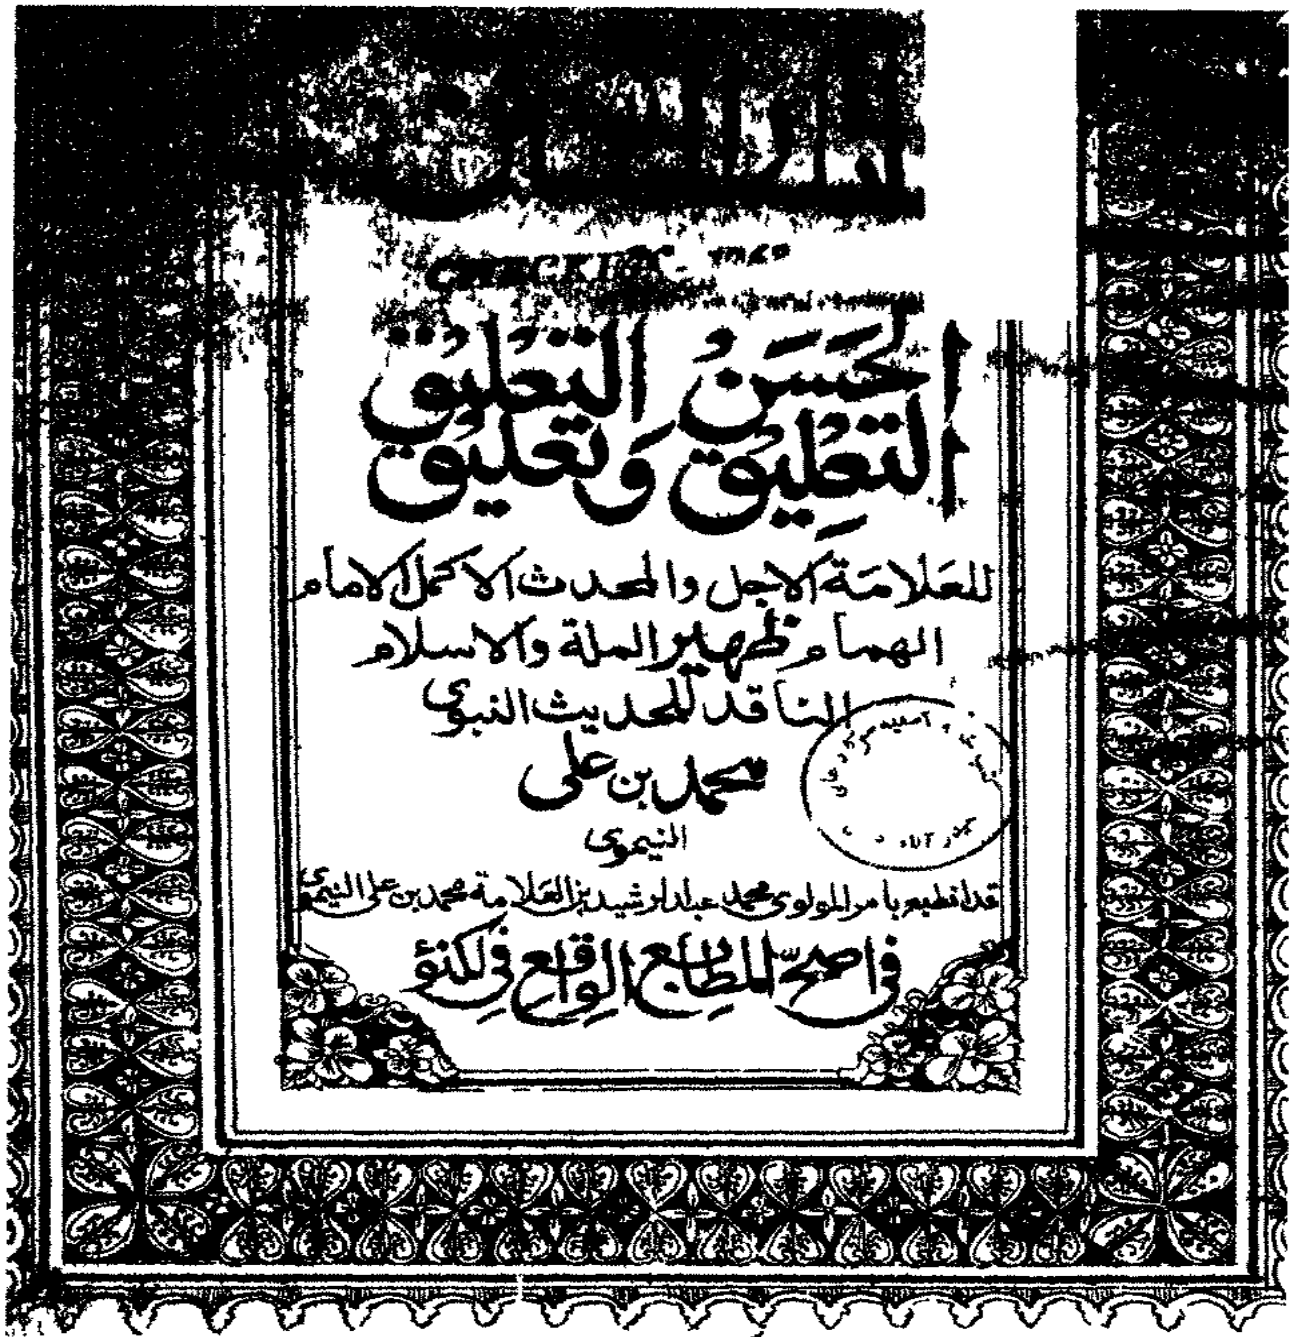 CHECKED
التَّعْلِيقُ الحَسَنُ
التَّعْلِيقُ وَتَعْلِيقُ
للعَلامَة الاجل والمحدث الاكمل الامام
الهمام ظهير الملة والاسلام
الناقد للحديث النبوى
محمد بن على
النيموى
قد انطبع بامر المولوى محمد عبد الرشيد بن العلامة محمد بن على النيموى
فى اصحّ المطابع الواقع فى لكنؤ
حيدر آباد